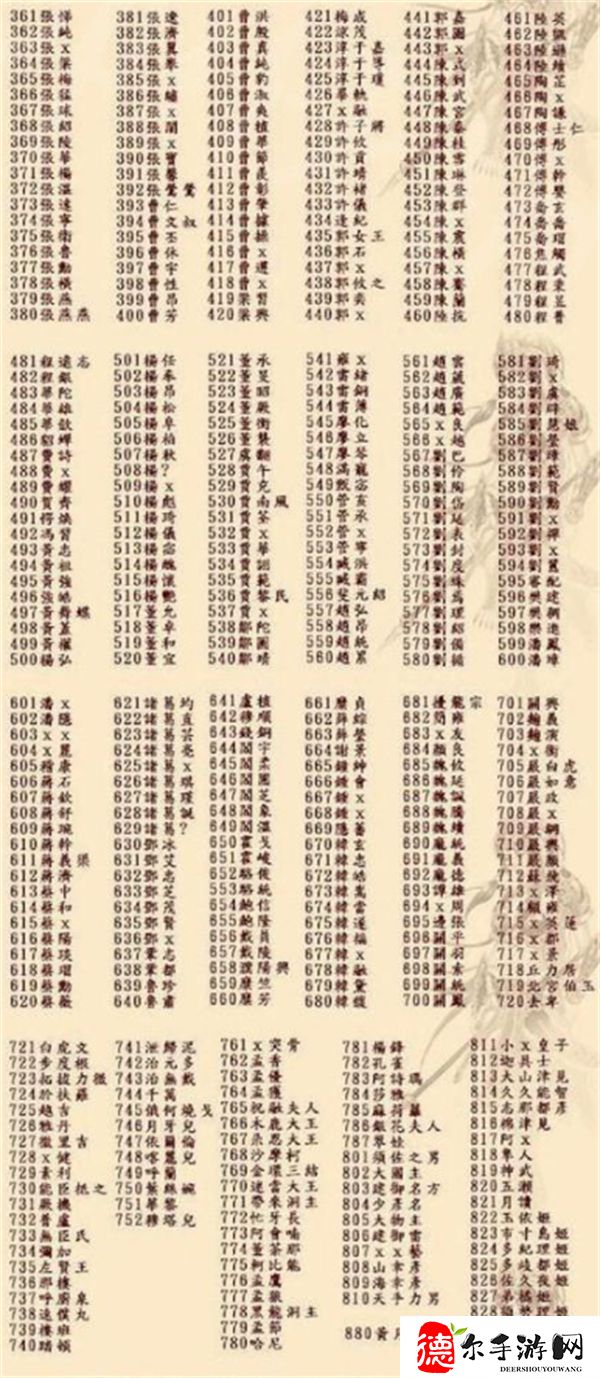 361張悌
362張純
363張x
364張梁
365張梅
366張猛
367張球
368張紹
369張陵
370張華
371張楊
372張溫
373張達
374張寧
375張衛
376張魯
377張勳
378張橫
379張燕
380張燕燕
381張遼
382張濟
383張翼
384張舉
385張x
386張繡
387張x
388張闓
389張x
390張寶
391張馨
392張鶯鶯
393曹仁
394曹文叔
395曹丕
396曹休
397曹宇
398曹性
399曹昂
400曹芳
401曹洪
402曹殷
403曹真
404曹純
405曹豹
406曹淑
407曹爽
408曹植
409曹華
410曹節
411曹嵩
412曹彰
413曹肇
414曹據
415曹操
416曹x
417曹遵
418曹x
419梁習
420梁興
421梅成
422涼茂
423淳于嘉
424淳于導
425淳于瓊
426畢軌
427x融
428許子將
429許攸
430許貢
431許靖
432許褚
433許儀
434逢紀
435郭女王
436郭石
437郭x
438郭攸之
439郭奕
440郭x
441郭嘉
442郭圖
443郭x
444陳式
445陳到
446陳武
447陳宮
448陳泰
449陳桂
450陳雪
451陳琳
452陳登
453陳群
454陳x
455陳震
456陳橫
457陳x
458陳騫
459陳蘭
460陳抗
461陸英
462陸佩
463陸遜
464陸績
465陶芷
466陶x
467陶謙
468傅士仁
469傅彤
470傅x
471傅幹
472傅嬰
473喬玄
474喬喬
475喬瑁
476焦觸
477程武
478程秉
479程昱
480程普
481程遠志
482程銀
483華陀
484華雄
485華歆
486貂蟬
487費詩
488費x
489費耀
490賈齊
491愕煥
492馮習
493黃忠
494黃祖
495黃強
496張皓
497黃舞蝶
498黃蓋
499黃權
500楊弘
501楊任
502楊奉
503楊昂
504楊松
505楊阜
506楊柏
507楊秋
508楊?
509楊x
510楊彪
511楊琦
512楊儀
513楊宓
514楊醜
515楊懷
516楊艷
517董允
518董卓
519董和
520董宜
521董承
522董旻
523董昭
524董厥
525董衡
526董襲
527虞翻
528賈午
529賈充
530賈南風
531賈荃
532賈x
533賈華
534賈詡
535賈範
536賈黎民
537賈x
538鄒陀
539鄒圖
540鄒靖
541雍x
542雷緒
543雷銅
544雷薄
545廖化
546廖立
547廖琴
548滿寵
549甄宓
550管亥
551管承
553管寧
554臧洪
555臧霸
556斐元紹
557趙弘
558趙昂
559趙統
560趙累
561趙雲
562趙葳
563趙廣
564趙範
565x良
566x越
567劉巴
568劉伶
569劉陶
570劉岱
571劉延
572劉表
573劉封
574劉度
575劉咮
576劉焉
577劉理
578劉紹
579劉備
580劉循
581劉琦
582劉x
583劉虞
584劉辟
585劉慧娘
586劉瑩
587劉璋
588劉範
589劉賢
590劉勳
591劉x
592劉禪
593劉x
594劉翼
595審配
596樊建
597樊稠
598樊進
599潘鳳
600潘璋
601潘x
602潘隱
603xx
604x麗
605稽康
606蔣石
607蔣欽
608蔣舒
609蔣琬
610蔣幹
611蔣義渠
612蔣濟
613蔡中
614蔡和
615蔡x
616蔡陽
617蔡琰
618蔡瑁
619蔡勳
620蔡薇
621諸葛均
622諸葛直
623諸葛芸
624諸葛亮
625諸葛x
626諸葛琪
627諸葛瑾
628諸葛誕
629諸葛?
630鄧冰
631鄧艾
632鄧忠
633鄧芝
634鄧茂
635鄧賢
636鄧x
637鞏志
638鞏都
639魯珍
640魯肅
641盧植
642穆順
643錢銅
644閻宇
645閻柔
646閻圃
647閻芝
648閻象
649閻溫
650霍戈
651霍峻
652駱俊
653駱統
654鮑信
655鮑隆
656戴員
657戴陵
658濮陽興
659糜竺
660糜芳
661糜貞
662薛綜
663薛瑩
664謝景
665鍾紳
666鍾會
667鍾x
668鍾x
669隱蕃
670韓玄
671韓忠
672韓皓
673韓嵩
674韓當
675韓遂
676韓福
677韓x
678韓融
679韓黨
680韓馥
681擾龍宗
682簡雍
683x友
684顏良
685魏攸
686魏延
687魏諷
688魏騰
689魏續
690龐統
691龐義
692龐德
693譚雄
694x周
695邊張
696關平
697關羽
698關索
699關統
700關鳳
701關興
702麴義
703麴演
704x衡
705嚴白虎
706嚴如意
707嚴政
708嚴x
709嚴綱
710嚴興
711嚴顏
712蘇飛
713x澤
714顧雍
715x英蓮
716x都
717x景
718丘力居
719北宮伯玉
720去卑
721白虎文
722步度根
723拓拔力微
724於扶羅
725越吉
726雅丹
727徹里吉
728x健
729素利
730能臣抵之
731厥機
732普盧
733無臣氏
734彌加
735左賢王
736那樓
737呼廚泉
738速僕丸
739樓班
740踏頓
741泄歸泥
742治元多
743治無戴
744千萬
745俄何燒戈
746月牙兒
747依爾倫
748喀麗兒
749呼蘭
750葉絲婉
751華黎
752穆塔兒
761x突骨
762孟香
763孟優
764孟獲
765祝融夫人
766木鹿大王
767朵思大王
768沙摩柯
769金環三結
770迷當大王
771帶來洞主
772忙牙長
773阿會喃
774董荼那
775柯比能
776孟鷹
777孟嶽
778黑龍洞主
779孟節
780哈尼
781楊鋒
782孔雀
783阿詩瑪
784莎雅
785麻荷蘿
786銀花夫人
787翠娃
801須佐之男
802大國主
803建御名方
804少彥名
805大物主
806建御雷
807xx藝
808山幸彥
809海幸彥
810天手力男
811小x皇子
812迦具士
813大山津見
814久久能智
815志那都彥
816綿津見
817阿x
818隼人
819神武
820五瀨
821月讀
822玉依姬
823市寸島姬
824多紀理姬
825多岐都姬
826佐久夜姬
827弟橘姬
828
880黃月
德尔手游网
DEERSHOUYOUWANG